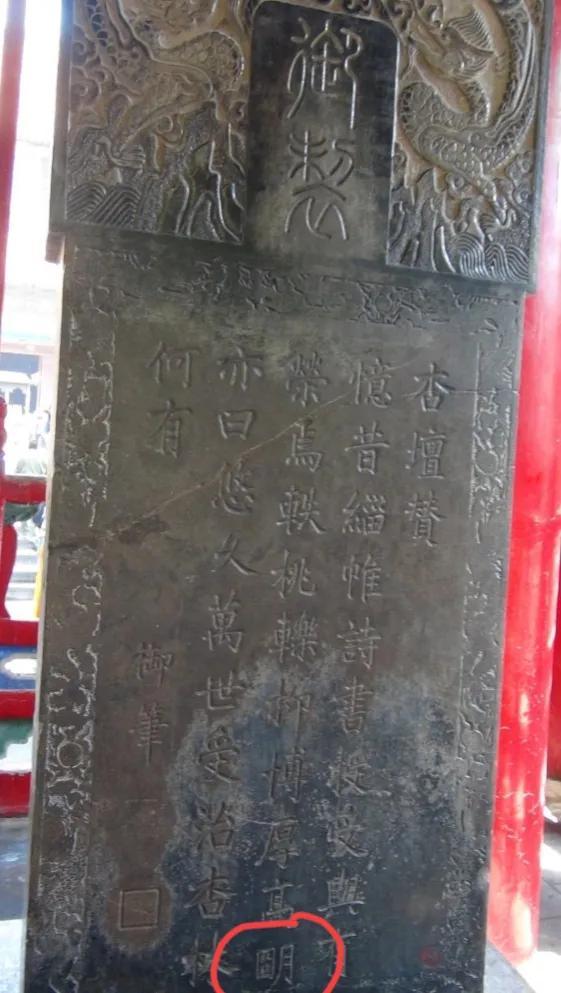 御製
杏壇賛
憶昔緇帷詩書授受與有
榮焉軼桃轢柳博厚高眀
亦曰悠久萬世受治杏林
何有
御筆